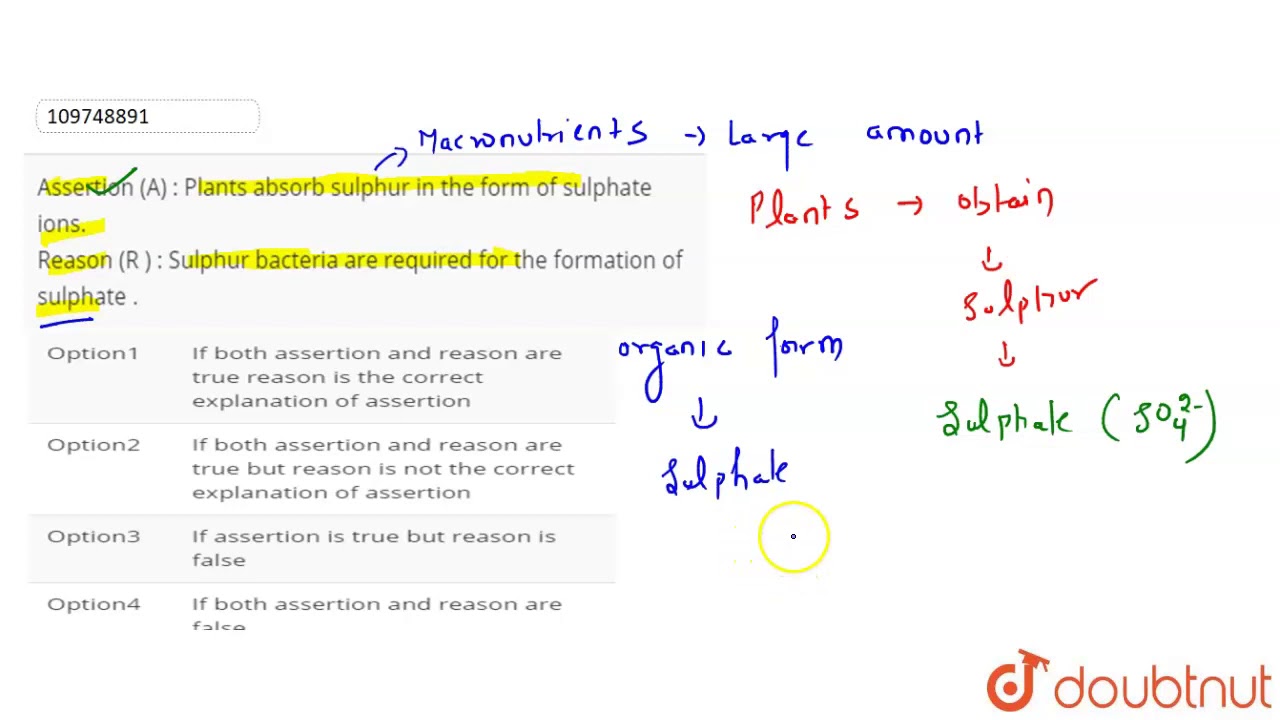 109748891
Macronutrients → Large amount
Assertion (A) : Plants absorb sulphur in the form of sulphate
ions.
Plants → obtain
Reason (R ) : Sulphur bacteria are required for the formation of
sulphate .
↓
Sulphur
↓
Sulphate (SO₄²⁻)
organic form
↓
Sulphate
Option1 If both assertion and reason are
true reason is the correct
explanation of assertion
Option2 If both assertion and reason are
true but reason is not the correct
explanation of assertion
Option3 If assertion is true but reason is
false
Option4 If both assertion and reason are
false
doubtnut